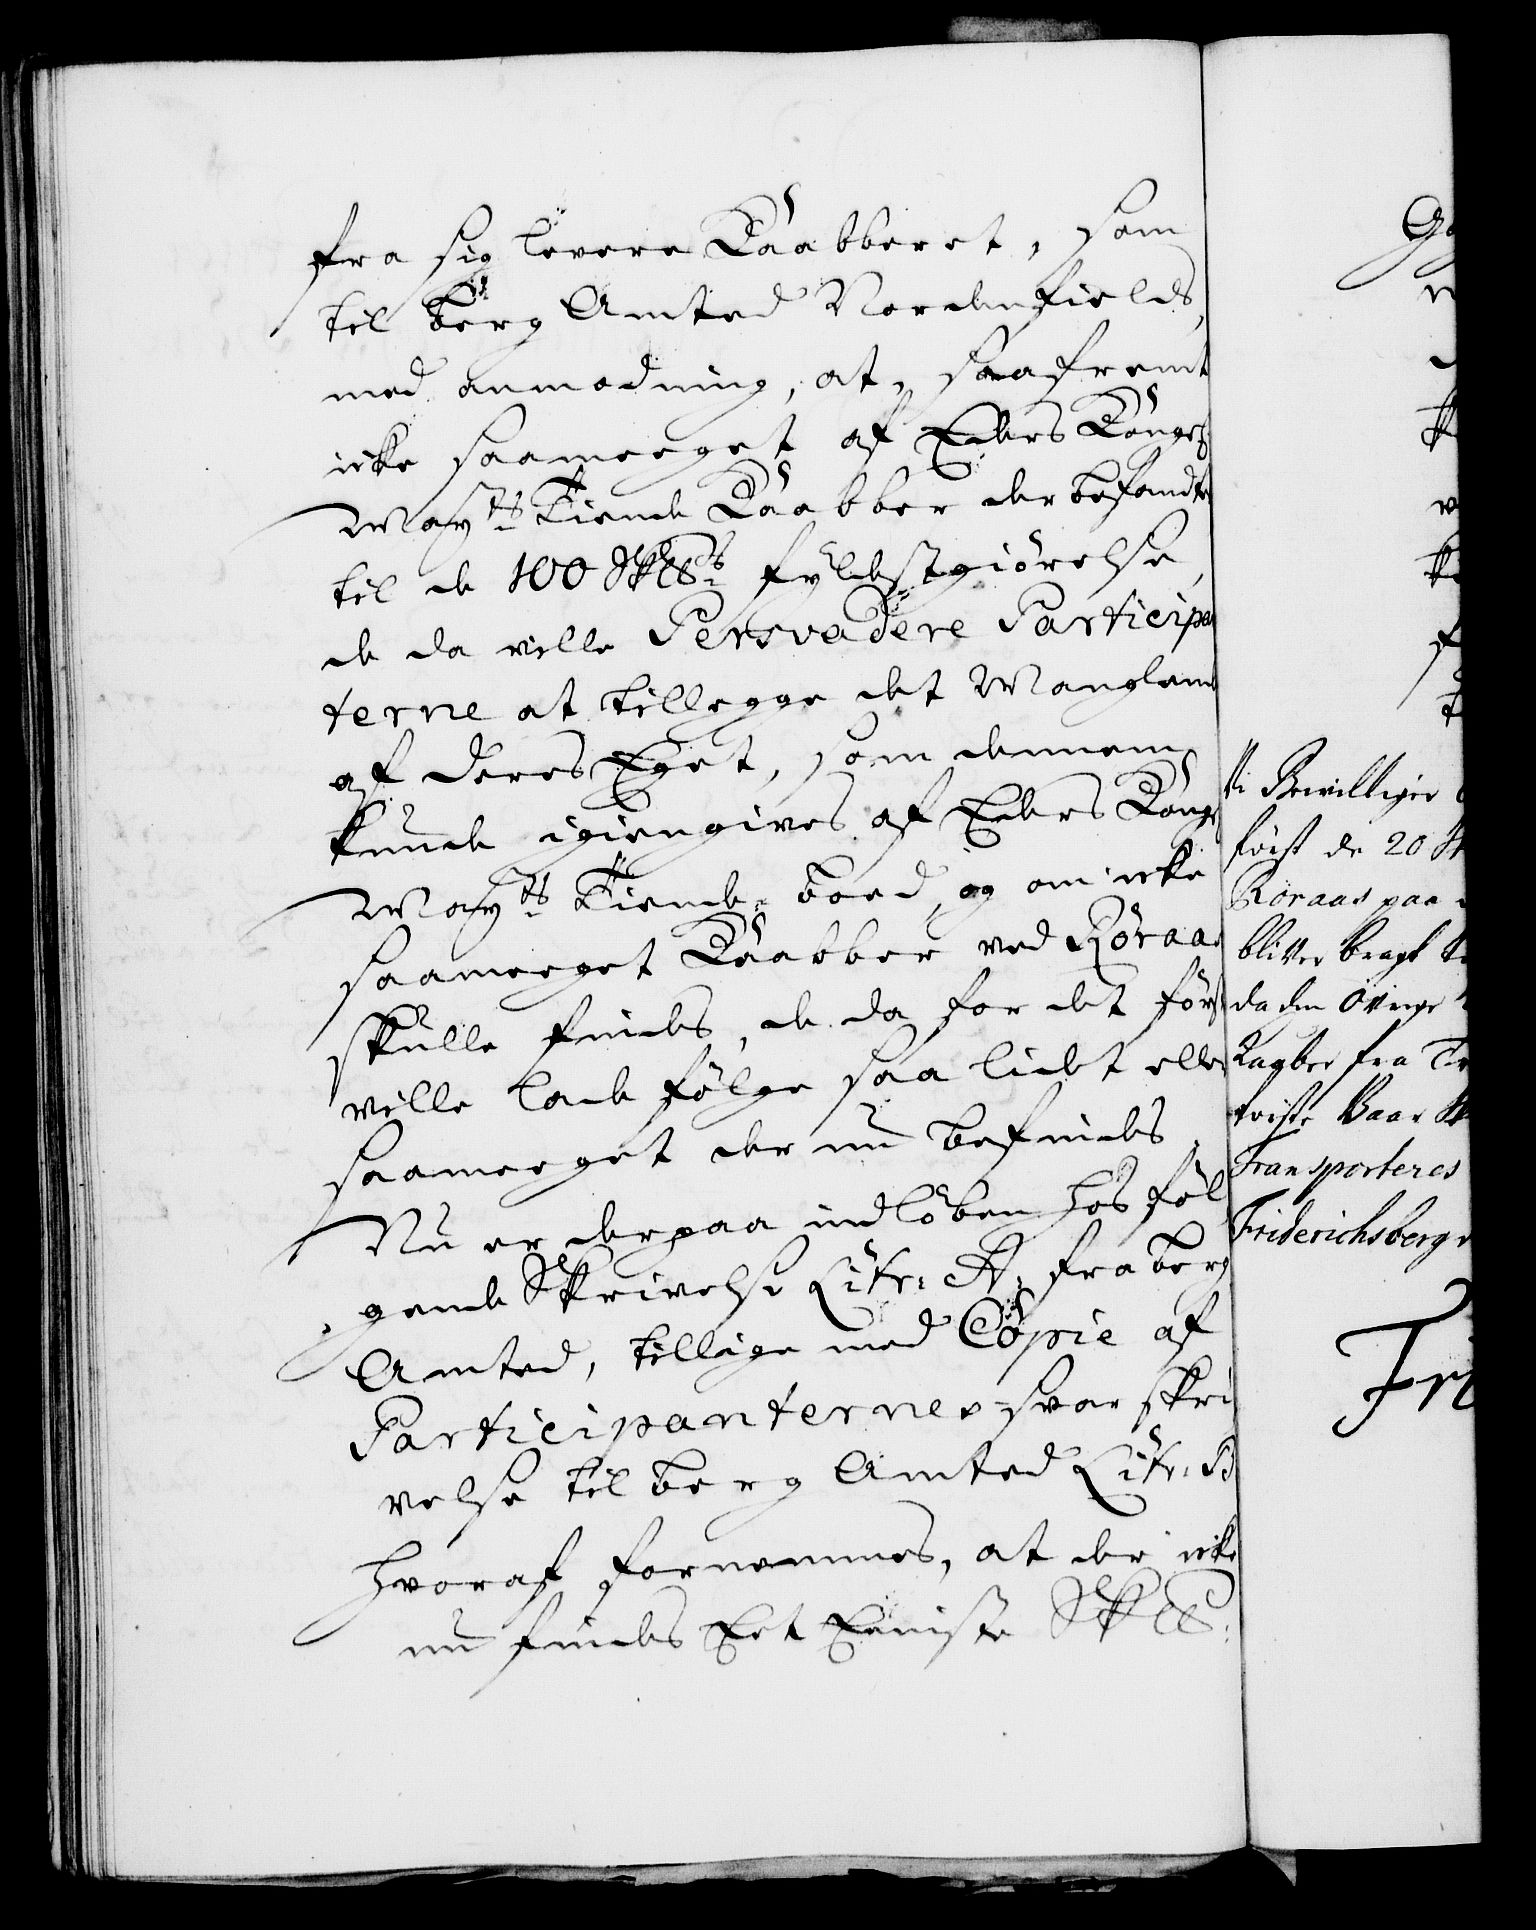 fra sig levere Kaabberet, som
til berg Amted Nordenfields,
med anmodning, at, saafremt
icke saameeget af Eders Konge
May:ts Tiende Kaabber der befandtes
til de 100 Sk℔ds fyldestgiørelse,
de da ville Persvadere Participan
terne at tillegge det Manglende
af deres Eget, som dennem
kunde igiengives af Eders Konge
May:ts Tiende-boed, og om icke
saameeget Kaabber ved Röraas
skulle findes, de da for det först
ville lade fölge saa lidet eller
saameeget der nu befindes,
Nu er derpaa indlöben hos föl
gende Skrivelse Litr: A: fra berg
Amted, tillige med Copie af
Participanternes svar skri
velse til berg Amted Litr: B
hvoraf fornemmes, at der icke
nu findes Eet Eeniste Sk℔:
Bevilliger
först de 20
Röraas paa
bliver bragt
da den Övrige
Kaaber fra
Baar
Transporteres
Friderichsberg
Fri